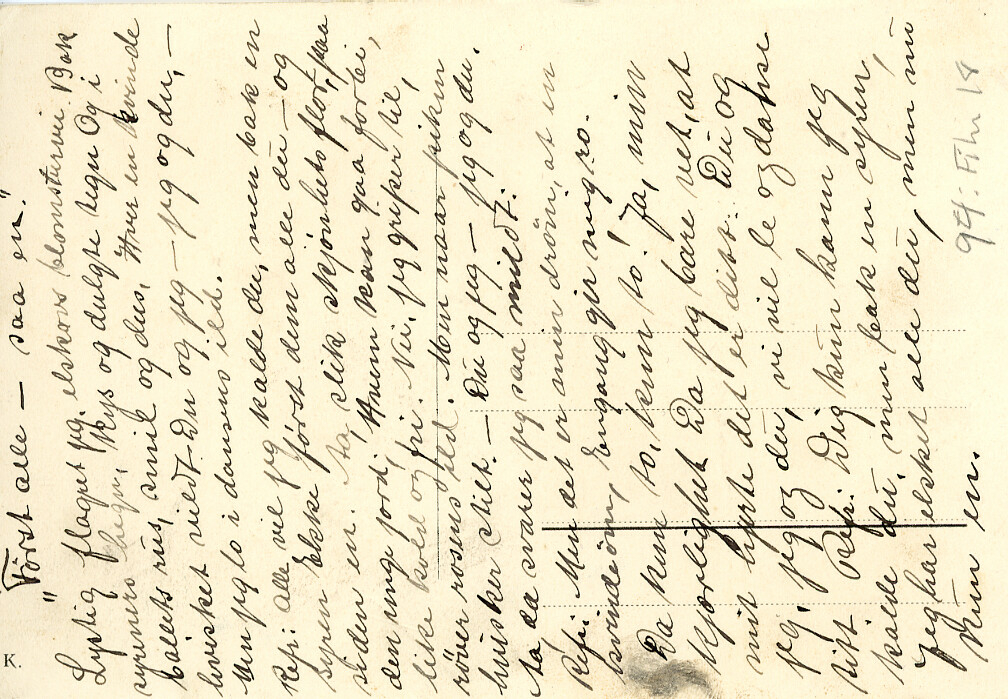 "Först alle — saa en."
Lystig flagret jeg. elskovs blomsturvei. Bak
syrenens hegn, kys og dulgte tegn Og i
ballets rüs, smil og dus, Hver en kvinde
hvisket vildt. Dü og jeg — jeg og dü, —
Men jeg lo i dansens ild.
Refr: alle vil jeg kalde dü, men bak en
syren Elske först dem alle dü — og
siden en. Ta slik skjönhets flor, paa
den unge jord, Hvem kan gaa forbi,
like kold og fri. Nei, jeg griper til,
röver rosens ild. Men naar piken
hvisker stilt. — Dü og jeg — jeg og dü.
Ja da svarer jeg saa mildt:
Refr: Men det er min dröm, at en
kvindeöm, Engang gir mig ro.
Da kün to, kün to! Ja, min
kjærlighet Da jeg bare vet, at
mit hjerte det er ditt. Dü og
jeg, jeg og dü, vi vil le og danse
titt Refr: Dig kün kann jeg
kalde dü, min bak en syren,
Jeg har elsket alle dü, men nü
Kün en.
K.
94: Film 18